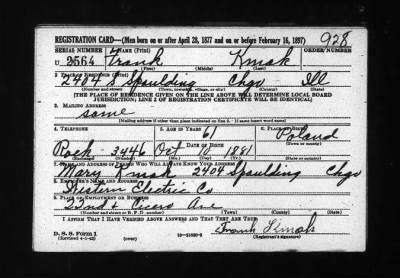 REGISTRATION CARD—(Men born on or after April 28, 1877 and on or before February 16, 1897) 928
SERIAL NUMBER 1. NAME (Print) ORDER NUMBER
U 2564 Frank Kmak
(First) (Middle) (Last)
2. PLACE OF RESIDENCE (Print)
2404 S Spaulding Chgo Ill
(Number and street) (Town, township, village, or city) (County) (State)
[THE PLACE OF RESIDENCE GIVEN ON THE LINE ABOVE WILL DETERMINE LOCAL BOARD
JURISDICTION; LINE 2 OF REGISTRATION CERTIFICATE WILL BE IDENTICAL]
3. MAILING ADDRESS
same
[Mailing address if other than place indicated on line 2. If same insert word same]
4. TELEPHONE 5. AGE IN YEARS 6. PLACE OF BIRTH
61 Poland
DATE OF BIRTH (Town or county)
Rock-3446 Oct 10 1881
(Exchange) (Number) (Mo.) (Day) (Yr.) (State or country)
7. NAME AND ADDRESS OF PERSON WHO WILL ALWAYS KNOW YOUR ADDRESS
Mary Kmak 2404 Spaulding Chgo
8. EMPLOYER'S NAME AND ADDRESS
Western Electric Co
9. PLACE OF EMPLOYMENT OR BUSINESS
22nd & Cicero Ave
(Number and street or R. F. D. number) (Town) (County) (State)
I AFFIRM THAT I HAVE VERIFIED ABOVE ANSWERS AND THAT THEY ARE TRUE.
D. S. S. Form 1 Frank Kmak
(Revised 4-1-42) (over) (Registrant's signature)